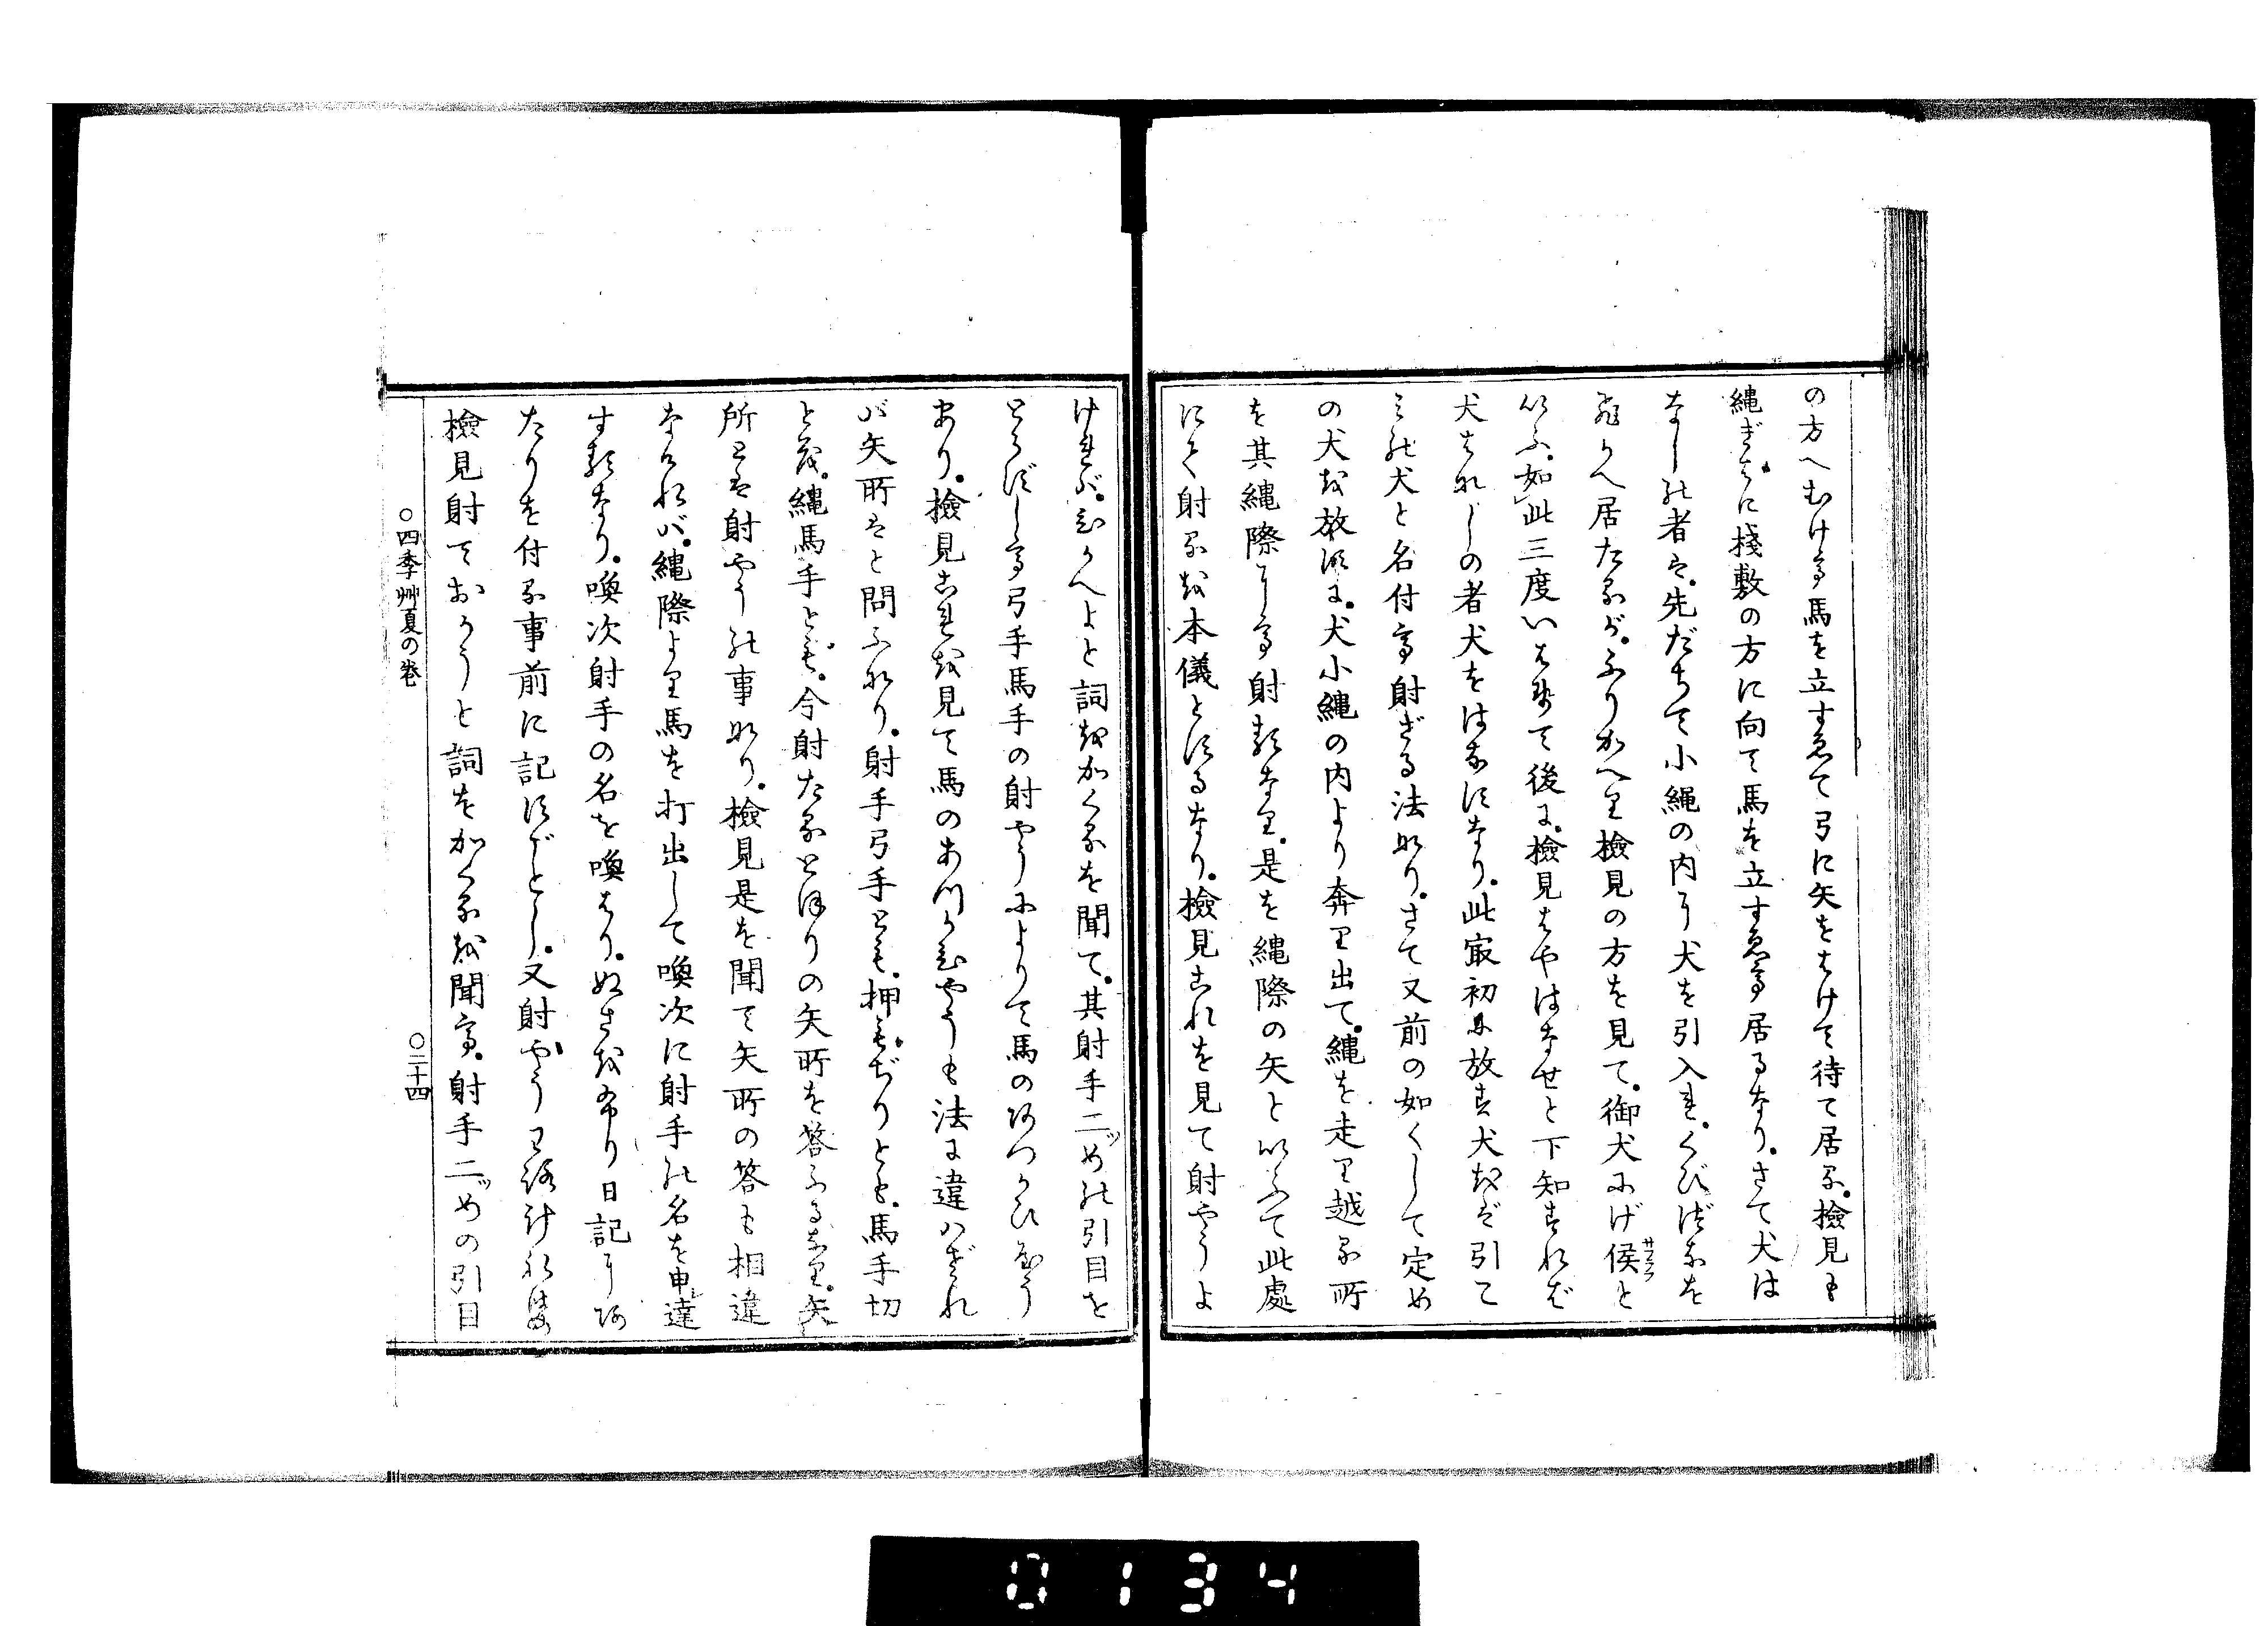 の方へむけて馬を立すゑて弓に矢をはけて待て居る。撿見も
縄ぎはに棧敷の方に向て馬を立すゑて居るなり。さて犬は
なしの者は。先だちて小縄の内に犬を引入れ。くびづなを
飛かへ居たるが。ふりかへり撿見の方を見て。御犬にげ侯と
いふ。如此三度いはせて後に。撿見はやはなせと下知すれば
犬はなしの者犬をはなすなり。此㝡初に放す犬をば引て
この犬と名付て射ざる法なり。さて又前の如くして定め
の犬を放つに。犬小縄の内より奔り出て。縄を走り越る所
を其縄際にて射るなり。是を縄際の矢といふて此處
にて射るを本儀とするなり。撿見これを見て射やうよ
ければ。ひかへよと詞をかくるを聞て。其射手二ツめの引目を
とらずして弓手馬手の射やうによりて馬のあつかひやう
あり。撿見これを見て馬のあつかひやうも法に違ハざれ
バ矢所はと問ふなり。射手弓手とも。押もぢりとも。馬手切
とも。縄馬手とも。今射たるとほりの矢所を答ふるなり。矢
所とは射やうの事なり。撿見是を聞て矢所の答も相違
なければ。縄際より馬を打出して喚次に射手の名を申達
するなり。喚次射手の名を喚はり。ぬさをふり日記にあ
たりを付る事前に記すごとし。又射やうわろければ
撿見射ておかうと詞をかくるを聞て。射手二ツめの引目
○四季艸夏の卷
○三十四
サフラフ
0134